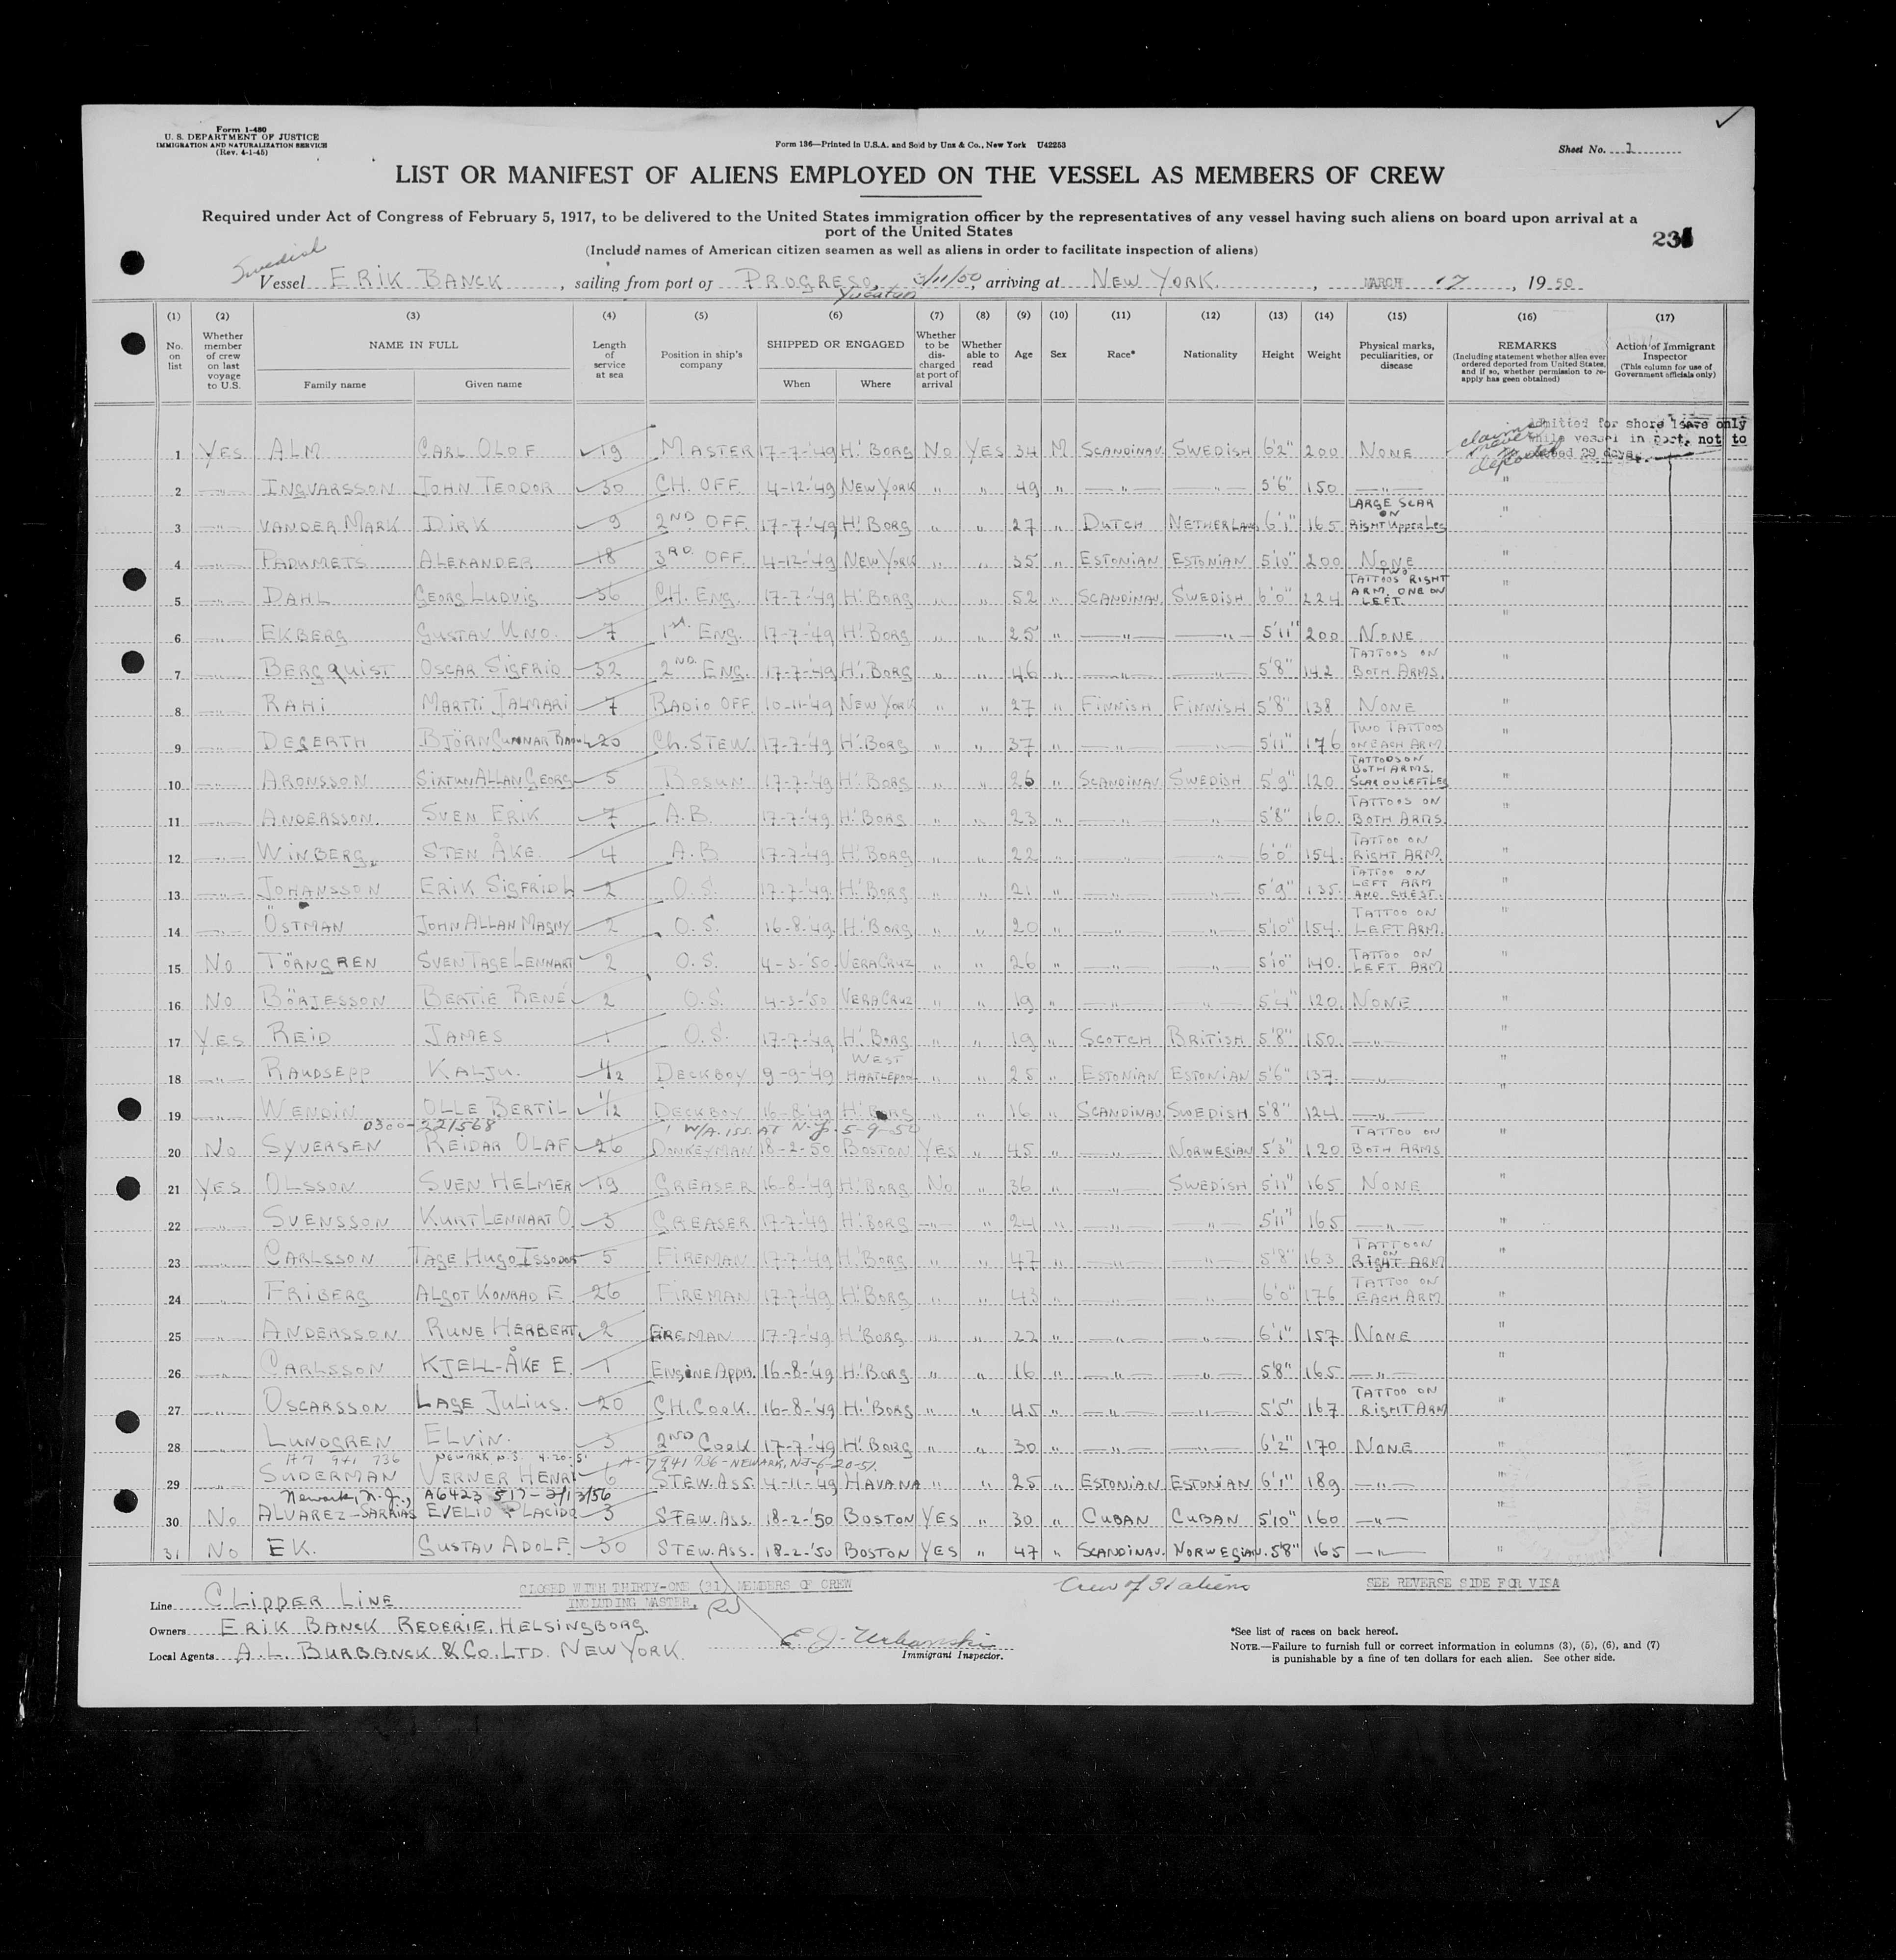 Form I-480
U. S. DEPARTMENT OF JUSTICE
IMMIGRATION AND NATURALIZATION SERVICE
(Rev. 4-1-45)
Form 136—Printed in U.S.A. and Sold by Unz & Co., New York U42253
Sheet No. 1
LIST OR MANIFEST OF ALIENS EMPLOYED ON THE VESSEL AS MEMBERS OF CREW
Required under Act of Congress of February 5, 1917, to be delivered to the United States immigration officer by the representatives of any vessel having such aliens on board upon arrival at a
port of the United States
(Include names of American citizen seamen as well as aliens in order to facilitate inspection of aliens)
Swedish
Vessel ERIK BANCK, sailing from port of PROGRESO, 3/11/50, arriving at NEW YORK, MARCH 17, 1950
Yucatan
(1) (2) (3) (4) (5) (6) (7) (8) (9) (10) (11) (12) (13) (14) (15) (16) (17)
No. on list
Whether member of crew on last voyage to U.S.
NAME IN FULL
Family name Given name
Length of service at sea
Position in ship's company
SHIPPED OR ENGAGED
When Where
Whether to be discharged at port of arrival
Whether able to read
Age
Sex
Race*
Nationality
Height
Weight
Physical marks, peculiarities, or disease
REMARKS
(Including statement whether alien ever ordered deported from United States, and if so, whether permission to reapply has been obtained)
Action of Immigrant Inspector
(This column for use of Government officials only)
Admitted for shore leave only
while vessel in port, not to
29 days
claims never deported
1 YES ALM CARL OLOF 19 MASTER 17-7-'49 H:BORG NO YES 34 M SCANDINAV. SWEDISH 6'2" 200 NONE
2 —"— INGVARSSON JOHN TEODOR 30 CH. OFF. 4-12-'49 NEW YORK " " 49 " —"— —"— 5'6" 150 —"— "
3 —"— VANDER MARK DIRK 9 2ND OFF. 17-7-'49 H:BORG " " 27 " DUTCH NETHERLAND 6'1" 165 LARGE SCAR ON RIGHT UPPER LEG "
4 —"— PADUMETS ALEXANDER 18 3RD OFF. 4-12-'49 NEW YORK " " 35 " ESTONIAN ESTONIAN 5'10" 200 NONE "
5 —"— DAHL GEORG LUDVIG 36 CH. ENG. 17-7-'49 H:BORG " " 52 " SCANDINAV. SWEDISH 6'0" 224 TWO TATTOOS RIGHT ARM, ONE ON LEFT. "
6 —"— EKBERG GUSTAV UNO. 7 1st ENG. 17-7-'49 H:BORG " " 25 " —"— —"— 5'11" 200 NONE "
7 —"— BERGQUIST OSCAR SIGFRID 32 2ND ENG. 17-7-'49 H:BORG " " 46 " —"— —"— 5'8" 142 TATTOOS ON BOTH ARMS. "
8 —"— RAHI MARTTI JALMARI 7 RADIO OFF. 10-11-'49 NEW YORK " " 27 " FINNISH FINNISH 5'8" 138 NONE "
9 —"— DEGERTH BJÖRN GUNNAR RAOUL 20 CH. STEW. 17-7-'49 H:BORG " " 37 " —"— —"— 5'11" 176 TWO TATTOOS ON EACH ARM "
10 —"— ARONSSON SIXTUN ALLAN GEORG 5 BOSUN 17-7-'49 H:BORG " " 26 " SCANDINAV. SWEDISH 5'9" 120 TATTOOS ON BOTH ARMS. SCAR ON LEFT LEG "
11 —"— ANDERSSON. SVEN ERIK 7 A.B. 17-7-'49 H:BORG " " 23 " —"— —"— 5'8" 160. TATTOOS ON BOTH ARMS. "
12 —"— WINBERG. STEN ÅKE. 4 A.B. 17-7-'49 H:BORG " " 22 " —"— —"— 6'0" 154. TATTOO ON RIGHT ARM. "
13 —"— JOHANSSON ERIK SIGFRID L 2 O.S. 17-7-'49 H:BORG " " 21 " —"— —"— 5'9" 135. TATTOO ON LEFT ARM AND CHEST. "
14 —"— ÖSTMAN JOHN ALLAN MAGNY 2 O.S. 16-8-'49. H:BORG " " 20 " —"— —"— 5'10" 154. TATTOO ON LEFT ARM. "
15 NO TÖRNGREN SVEN TAGE LENNART 2 O.S. 4-3-'50. VERACRUZ " " 26 " —"— —"— 5'10" 140. TATTOO ON LEFT ARM "
16 NO BÖRJESSON BERTIE RENÉ 2 O.S. 4-3-'50 VERACRUZ " " 19 " —"— —"— 5'4" 120. NONE. "
17 YES REID JAMES 1 O.S. 17-7-'49 H:BORG " " 19 " SCOTCH BRITISH 5'8" 150. —"— "
18 —"— RAUDSEPP KALJU. 1/2 DECKBOY 9-9-'49 WEST HARTLEPOOL " " 25 " ESTONIAN ESTONIAN 5'6" 137. —"— "
19 —"— WENDIN OLLE BERTIL 1/2 DECKBOY 16-8-'49 H:BORG " " 16 " SCANDINAV. SWEDISH 5'8" 124 —"— "
0300-221568 W/A. ISS. AT N.Y. 5-9-50
20 NO SYVERSEN REIDAR OLAF 26 DONKEYMAN 18-2-'50 BOSTON YES " 45 " —"— NORWEGIAN 5'3" 120 TATTOO ON BOTH ARMS "
21 YES OLSSON SVEN HELMER 19 GREASER 16-8-'49 H:BORG NO " 36 " —"— SWEDISH 5'11" 165 NONE "
22 —"— SVENSSON KURT LENNART O. 3 GREASER 17-7-'49 H:BORG —"— " 24 " —"— —"— 5'11" 165 —"— "
23 —"— CARLSSON TAGE HUGO ISSODOR 5 FIREMAN 17-7-'49 H:BORG " " 47 " —"— —"— 5'8" 163 TATTOO ON RIGHT ARM "
24 —"— FRIBERG ALGOT KONRAD E. 26 FIREMAN 17-7-'49 H:BORG " " 43 " —"— —"— 6'0" 176 TATTOO ON EACH ARM "
25 —"— ANDERSSON RUNE HERBERT. 2 FIREMAN 17-7-'49 H:BORG " " 22 " —"— —"— 6'1" 157 NONE "
26 —"— CARLSSON KJELL-ÅKE E. 1 ENGINE APPR. 16-8-'49 H:BORG " " 16 " —"— —"— 5'8" 165 —"— "
27 —"— OSCARSSON LAGE JULIUS. 20 CH. COOK. 16-8-'49 H:BORG " " 45 " —"— —"— 5'5" 167 TATTOO ON RIGHT ARM "
28 —"— LUNDGREN ELVIN. 3 2ND COOK 17-7-'49 H:BORG " " 30 " —"— —"— 6'2" 170 NONE "
A7 941 736 NEWARK, N.J. 4-20-51 A-7941736-NEWARK, NJ-6-20-51.
29 —"— SUDERMAN VERNER HENRI 6 STEW. ASS. 4-11-'49 HAVANA " " 25 " ESTONIAN ESTONIAN 6'1" 189 —"— "
Newark, N.J., A6423 517-2/13/56
30 NO ALVAREZ-SARRIAS EVELIO PLACIDO 3 STEW. ASS. 18-2-'50 BOSTON YES " 30 " CUBAN CUBAN 5'10" 160 —"— "
31 NO EK. GUSTAV ADOLF. 30 STEW. ASS. 18-2-'50 BOSTON YES " 47 " SCANDINAV. NORWEGIAN. 5'8" 165 —"— "
CLOSED WITH THIRTY-ONE (31) MEMBERS OF CREW
INCLUDING MASTER.
Crew of 31 aliens
SEE REVERSE SIDE FOR VISA
Line CLIPPER LINE
Owners ERIK BANCK REDERIE, HELSINGBORG.
Local Agents A.L. BURBANCK & CO. LTD. NEW YORK.
E. J. Urbanski
Immigrant Inspector.
*See list of races on back hereof.
NOTE.—Failure to furnish full or correct information in columns (3), (5), (6), and (7)
is punishable by a fine of ten dollars for each alien. See other side.